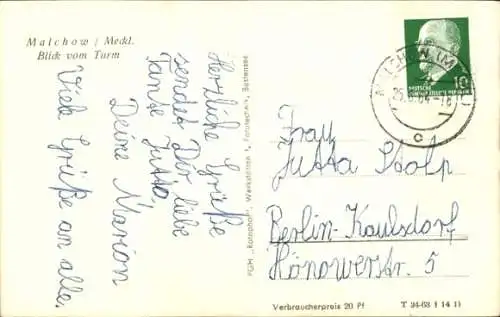 Malchow / Meckl.
Blick vom Turm
Herzliche Grüße
sendet Dir liebe
Tante Jutta,
Deine Marion
Viele Grüße an alle.
PGH „Rotophot“, Werkstätten f. Fototechnik, Bestensee
MALCHOW (M
C
DEUTSCHE
DEMOKRATISCHE REPUBLIK
10
Frau
Jutta Stolp
Berlin-Kaulsdorf
Hönowerstr. 5
Verbraucherpreis 20 Pf
T 34-63 f 14 11